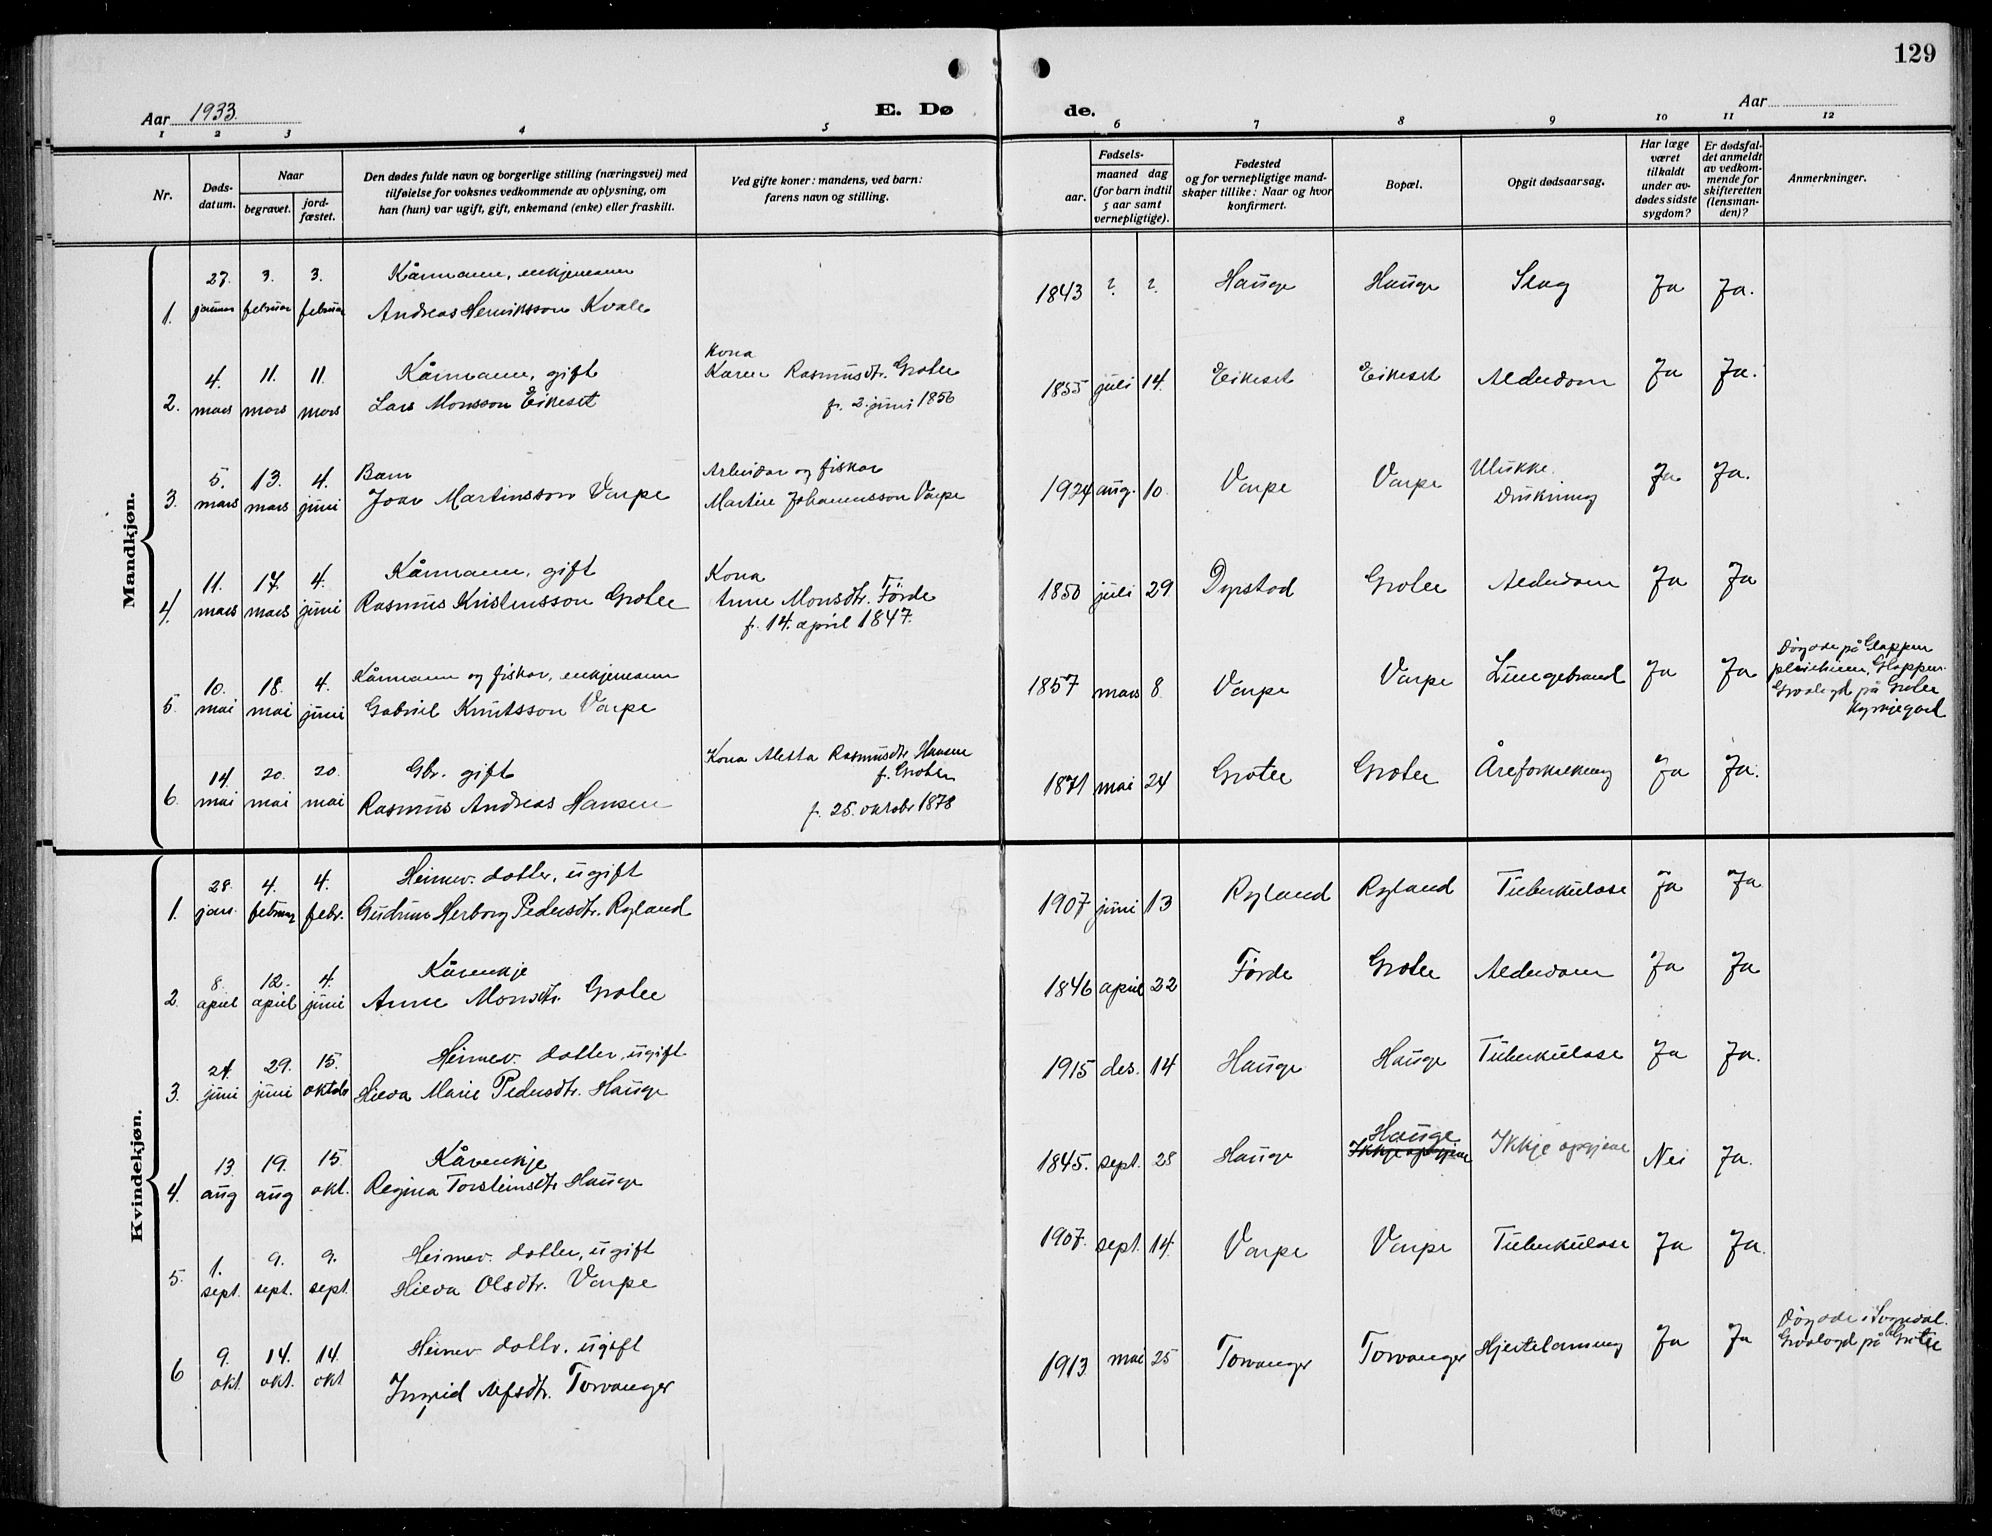 129
Aar 1933.
E. Døde.
Aar
1 2 3 4 5 6 7 8 9 10 11 12
Nr.
Døds-
datum.
Naar
begravet.
jord-
fæstet.
Den dødes fulde navn og borgerlige stilling (næringsvei) med
tilføielse for voksnes vedkommende av oplysning, om
han (hun) var ugift, gift, enkemand (enke) eller fraskilt.
Ved gifte koner: mandens, ved barn:
farens navn og stilling.
Fødsels-
aar.
maaned dag
(for barn indtil
5 aar samt
vernepligtige).
Fødested
og for vernepligtige mand-
skaper tillike: Naar og hvor
konfirmert.
Bopæl.
Opgit dødsaarsag.
Har læge
været
tilkaldt
under av-
dødes sidste
sygdom?
Er dødsfal-
det anmeldt
av vedkom-
mende for
skifteretten
(lensman-
den)?
Anmerkninger.
Mandkjøn.
27. 3. 3. Kårmann, enkjemann
1. januar februar februar Andreas Henriksson Kvale 1843 ? ? Hauge Hauge Slag Ja Ja.
Kona
4. 11. 11. Kårmann, gift Karen Rasmusdtr. Grotle
2. mars mars mars Lars Monsson Eikeset f. 2. juni 1856 1855 juli 14. Eikeset Eikeset Alderdom Ja Ja.
5. 13. 4. Barn Arbeidar og fiskar Ulukke.
3. mars mars juni Joar Martinsson Varpe Martin Johannsson Varpe 1924 aug. 10. Varpe Varpe Drukning Ja Ja.
11. 17. 4. Kårmann, gift Kona
4. mars mars juni Rasmus Kristensson Grotle Anne Monsdtr. Förde 1850 juli 29 Dyrstad Grotle Alderdom Ja Ja
f. 14. april 1847.
10. 18. 4. Kårmann og fiskar, enkjemann
5. mai mai juni Gabriel Knutsson Varpe 1857 mars 8. Varpe Varpe Lungebrand Ja Ja
Döydde på
Gravlagd på Grotle
kyrkjegard
14. 20. 20. Gbr. gift Kona Aletta Rasmusdtr Hansen
f. Grotle
6. mai mai mai Rasmus Andreas Hansen f. 25. oktobr 1878 1871 mai 24 Grotle Grotle Åreforkalkning Ja Ja.
Kvindekjøn.
28. 4. 4. Heimev. dotter, ugift
1. jan. februar febr. Gudrun Herborg Pedersdtr. Ryland 1907 juni 13 Ryland Ryland Tuberkulose Ja Ja
8. 12. 4. Kårenkje
2. april april juni Anne Monsdtr. Grotle 1846 april 22 Förde Grotle Alderdom Ja Ja
24. 29. 15. Heimev. dotter, ugift.
3. juni juni oktobr Hilva Marie Pedersdtr. Hauge 1915 des. 14 Hauge Hauge Tuberkulose Ja Ja.
13. 19. 15. Kårenkje Hauge
4. aug aug okt. Regina Torsteinsdtr Hauge 1845. sept. 28 Hauge Ikkje opgjeve Ikkje opgjeve Nei Ja.
1. 9. 9. Heimev. dotter, ugift
5. sept. sept. sept. Hilva Olsdtr. Varpe 1907. sept. 14. Varpe Varpe Tuberkulose Ja Ja.
9. 14. 14. Heimev. dottr. ugift
6 okt. okt. okt Ingrid Alfsdtr. Torvanger 1913 mai 25 Torvanger Torvanger Hjertelamning Ja Ja
Döydde i Sogndal.
Gravlagd på Grotle